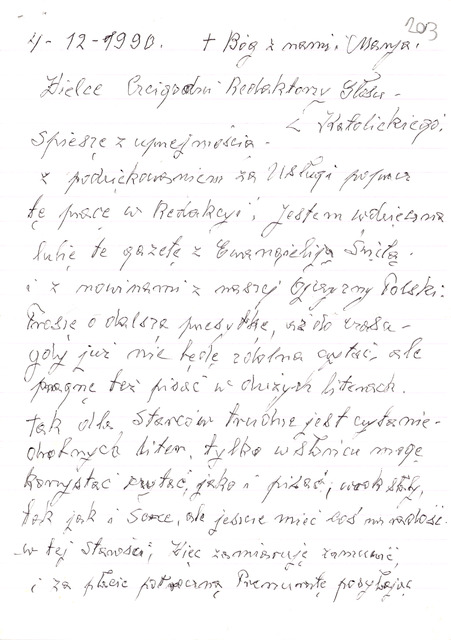 203
4-12-1990. + Bóg z nami i Marya.
Wielce Czcigodni Redaktorzy Głosu -
Katolickiego.
Spieszę z uprzejmością -
z podziękowaniem za Usługi poprzez
tę pracę w Redakcyi, jestem wdzięczna
lubię tę gazetę z Ewangieliją Świętą.
i z nowinami z naszej Ojczyzny Polski.
Proszę o dalszą przesyłkę, aż do czasu -
gdy już nie będę zdolna czytać, ale
pragnę też pisać w dużych literach.
tak dla Starców trudne jest czytanie -
drobnych liter, tylko w słońcu mogę
korzystać czytać, jako i pisać, wzrok słaby,
tak jak i Serce, ale jeszcze mieć coś na radość.
w tej Starości, Więc zamiaruję
i za płacie półroczną Prenumeratę posyłając